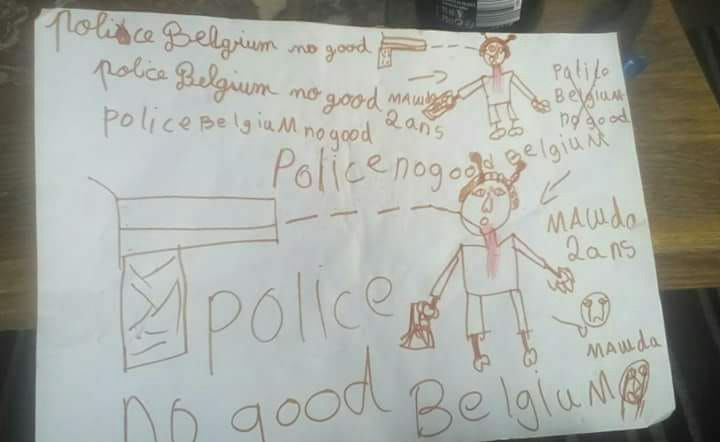 police Belgium no good
police Belgium no good
police BelgiuM no good
MAwda
2 ans
Police
BelgiuM
no good
Police no good BelgiuM
MAwda
2 ans
police
MAwda
no good BelgiuM